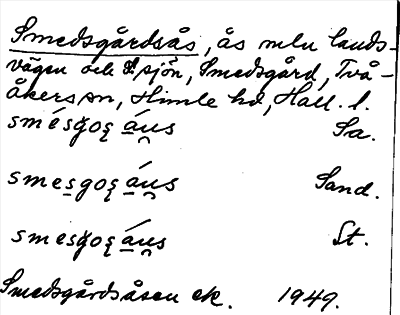 Smedsgårdsås, ås mln lands-
vägen och St. sjön, Smedsgård, Två-
åkers sn, Himle hd, Hall. l.
smésgoʂ áu̯s Sa.
smesgoʂ áu̯s Sand.
smesgoʂ áu̯s St.
Smedsgårdsåsen ek. 1949.